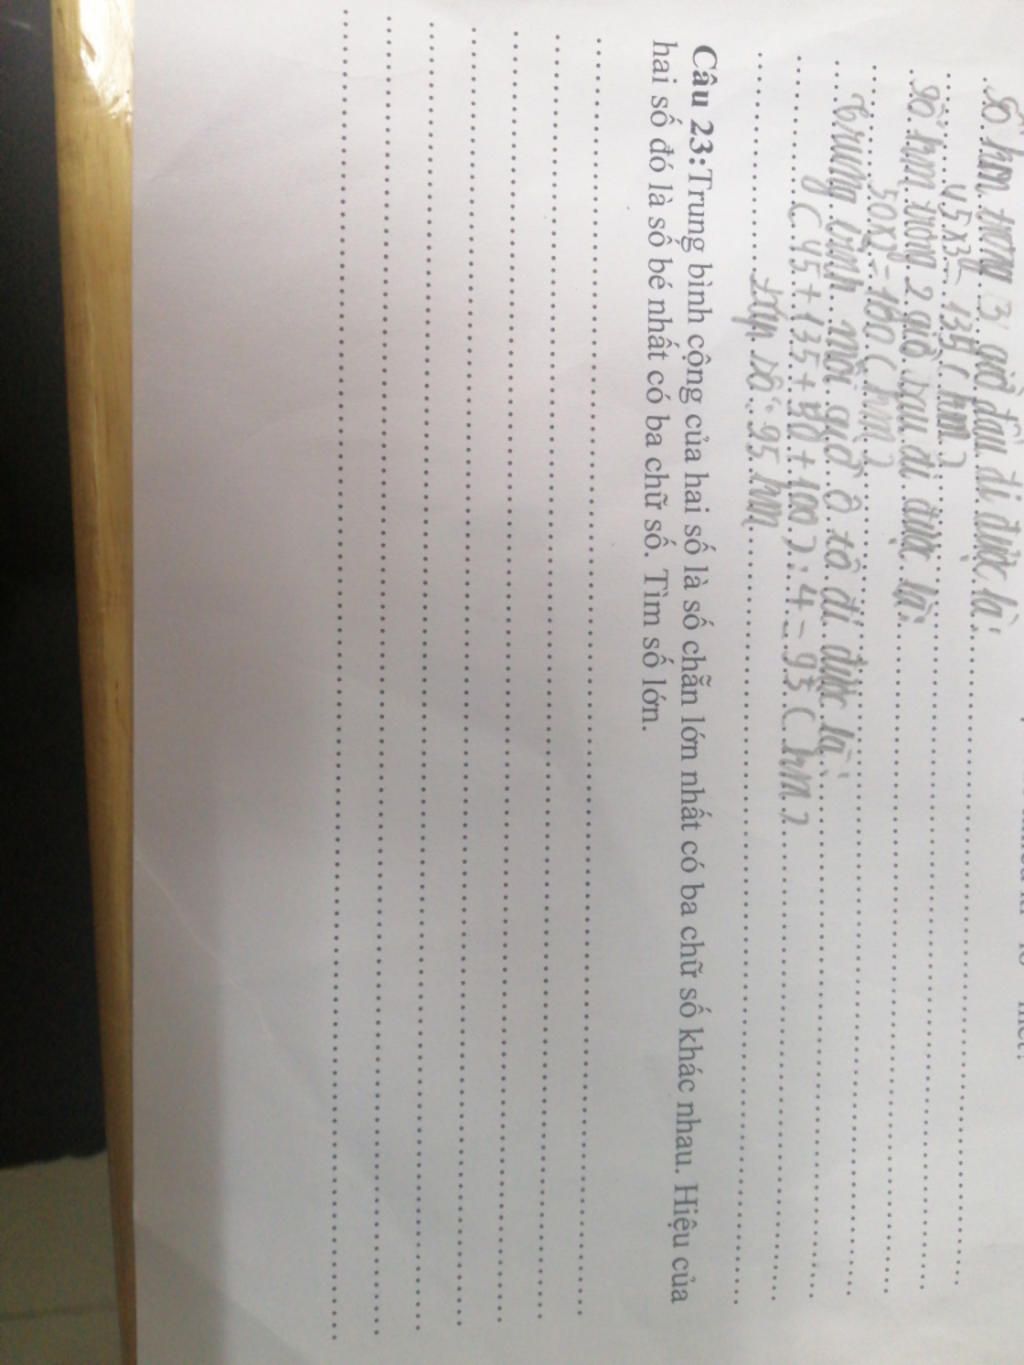 Số km trong 3 giờ đầu đi được là:
45x3= 135 ( km )
Số km trong 2 giờ sau đi được là:
50x2 = 100 ( km )
Trung bình mỗi giờ ô tô đi được là:
( 45 + 135 + 50 + 100 ) : 4 = 95 ( km )
số: 95 km
Câu 23:Trung bình cộng của hai số là số chẵn lớn nhất có ba chữ số khác nhau. Hiệu của
hai số đó là số bé nhất có ba chữ số. Tìm số lớn.